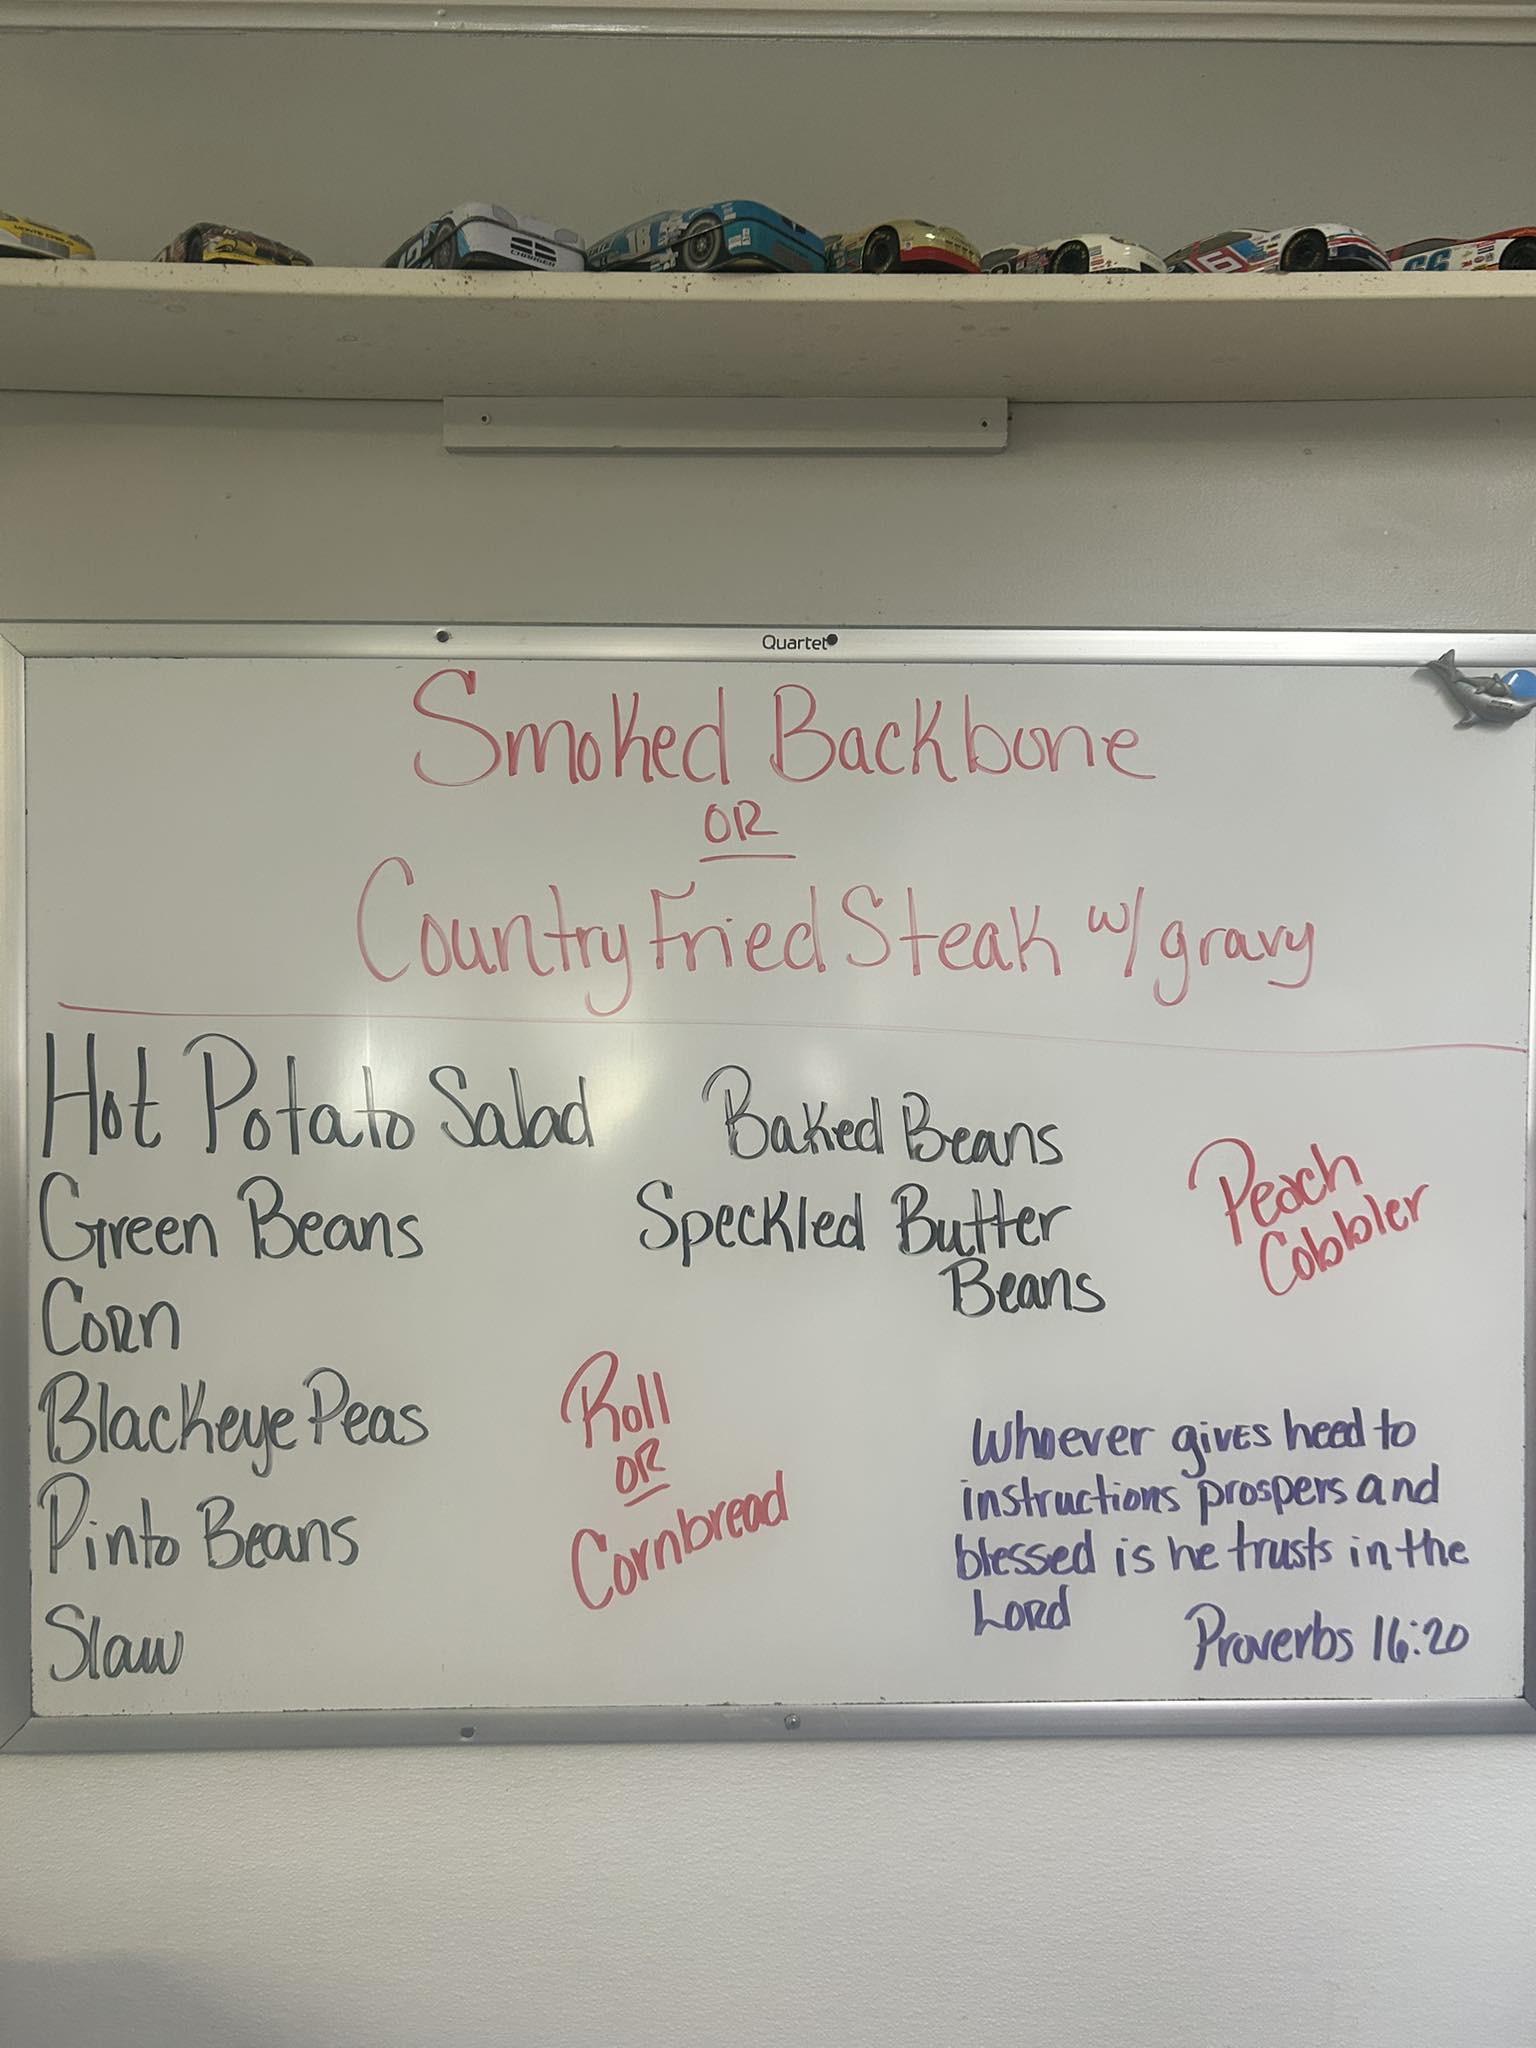 MONTE CARLO
12
CHARGER
18
16
66
Quartet
Smoked Backbone
OR
Country Fried Steak w/ gravy
Hot Potato Salad
Baked Beans
Green Beans
Speckled Butter
Beans
Peach
Cobbler
Corn
Blackeye Peas
Pinto Beans
Slaw
Roll
OR
Cornbread
Whoever gives heed to
instructions prospers and
blessed is he trusts in the
Lord
Proverbs 16:20